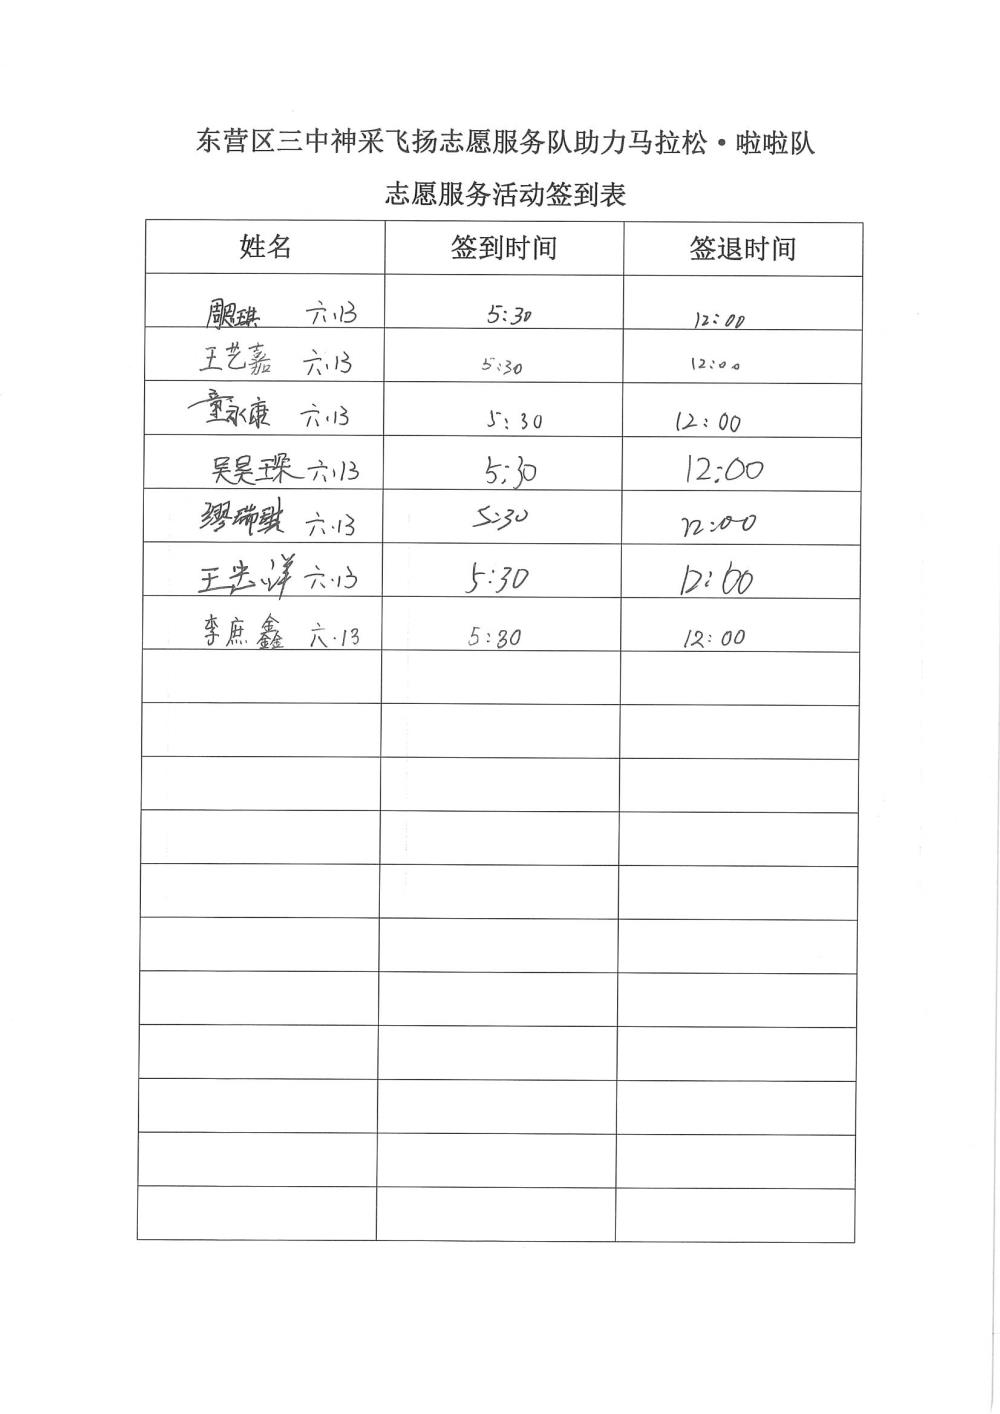 东营区三中神采飞扬志愿服务队助力马拉松·啦啦队
志愿服务活动签到表
姓名 签到时间 签退时间
周恩琪 六.13 5:30 12:00
王艺嘉 六.13 5:30 12:00
童永康 六.13 5:30 12:00
吴昊琛 六.13 5:30 12:00
缪瑞 六.13 5:30 12:00
王 洋 六.13 5:30 12:00
李庶鑫 六.13 5:30 12:00